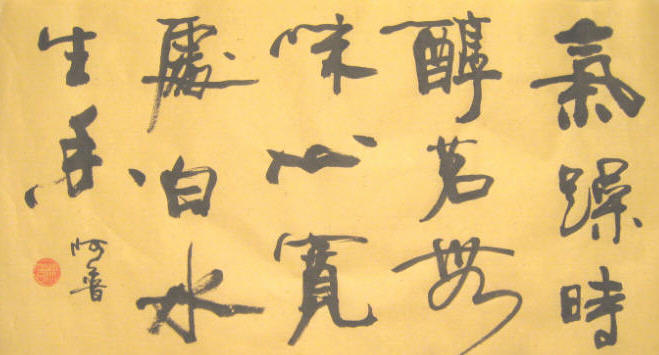 氣躁時
醇茗無
味心寬
處白水
生香
阿普